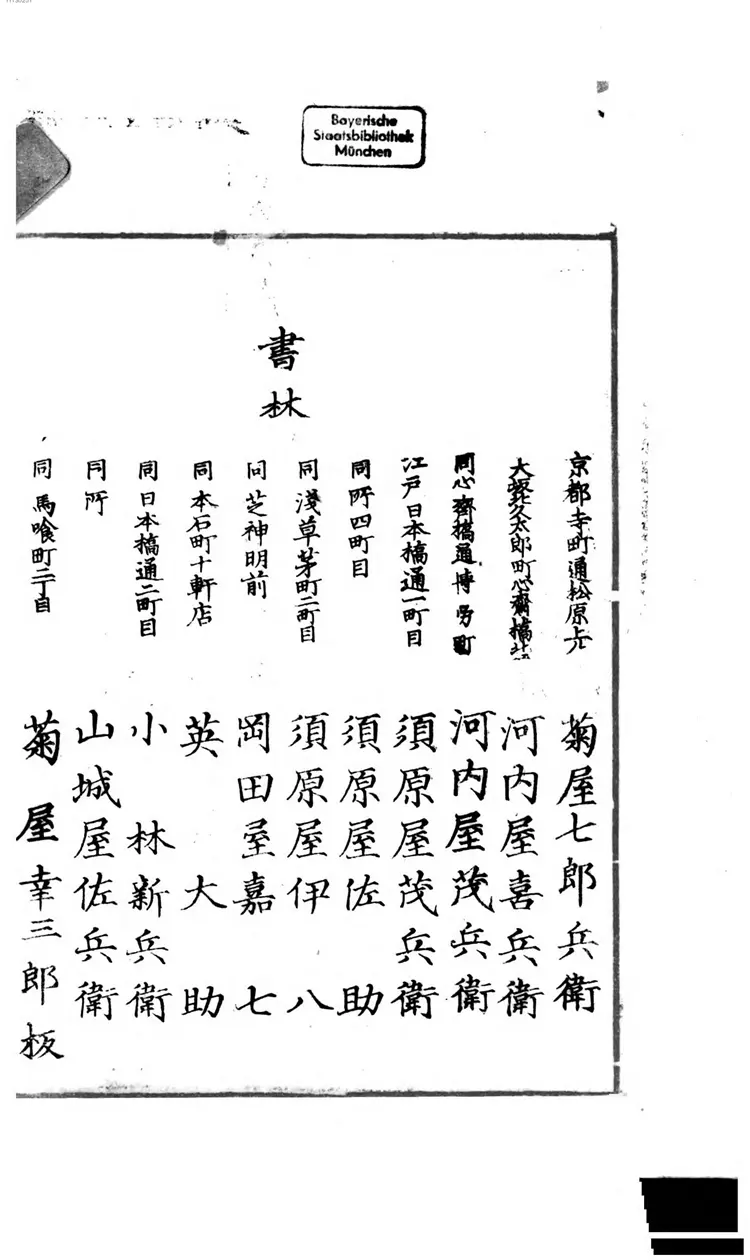 Bayerische
Staatsbibliothek
München
書林
京都寺町通松原上 菊屋七郎兵衛
大坂北久太郎町心齋橋 河内屋喜兵衛
同心齋橋通博勞町 河内屋茂兵衛
江戸日本橋通一町目 須原屋茂兵衛
同所四町目 須原屋佐助
同淺草茅町二町目 須原屋伊八
同芝神明前 岡田屋嘉七
同本石町十軒店 英大助
同日本橋通二町目 小林新兵衛
同所 山城屋佐兵衛
同馬喰町二丁目 菊屋幸三郎板